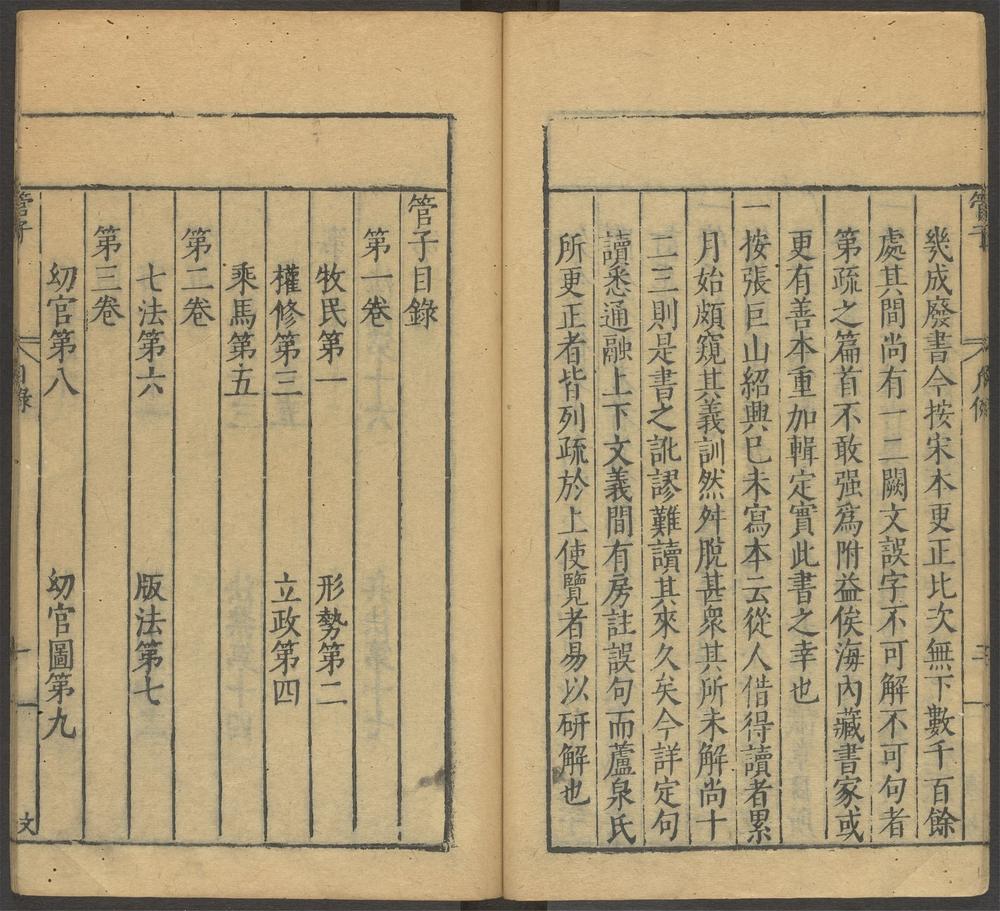 幾成廢書今按宋本更正比次無下數千百餘
處其間尚有一二闕文誤字不可解不可句者
第疏之篇首不敢强爲附益俟海內藏書家或
更有善本重加輯定實此書之幸也
一按張巨山紹興巳未寫本云從人借得讀者累
月始頗窺其義訓然舛脫甚衆其所未解尚十
二三則是書之訛謬難讀其來久矣今詳定句
讀悉通融上下文義間有房註誤句而蘆泉氏
所更正者皆列疏於上使覽者易以研解也
管子目錄
第一卷
牧民第一 形勢第二
權修第三 立政第四
乘馬第五
第二卷
七法第六 版法第七
第三卷
幼官第八 幼官圖第九
管子 目錄 一 文